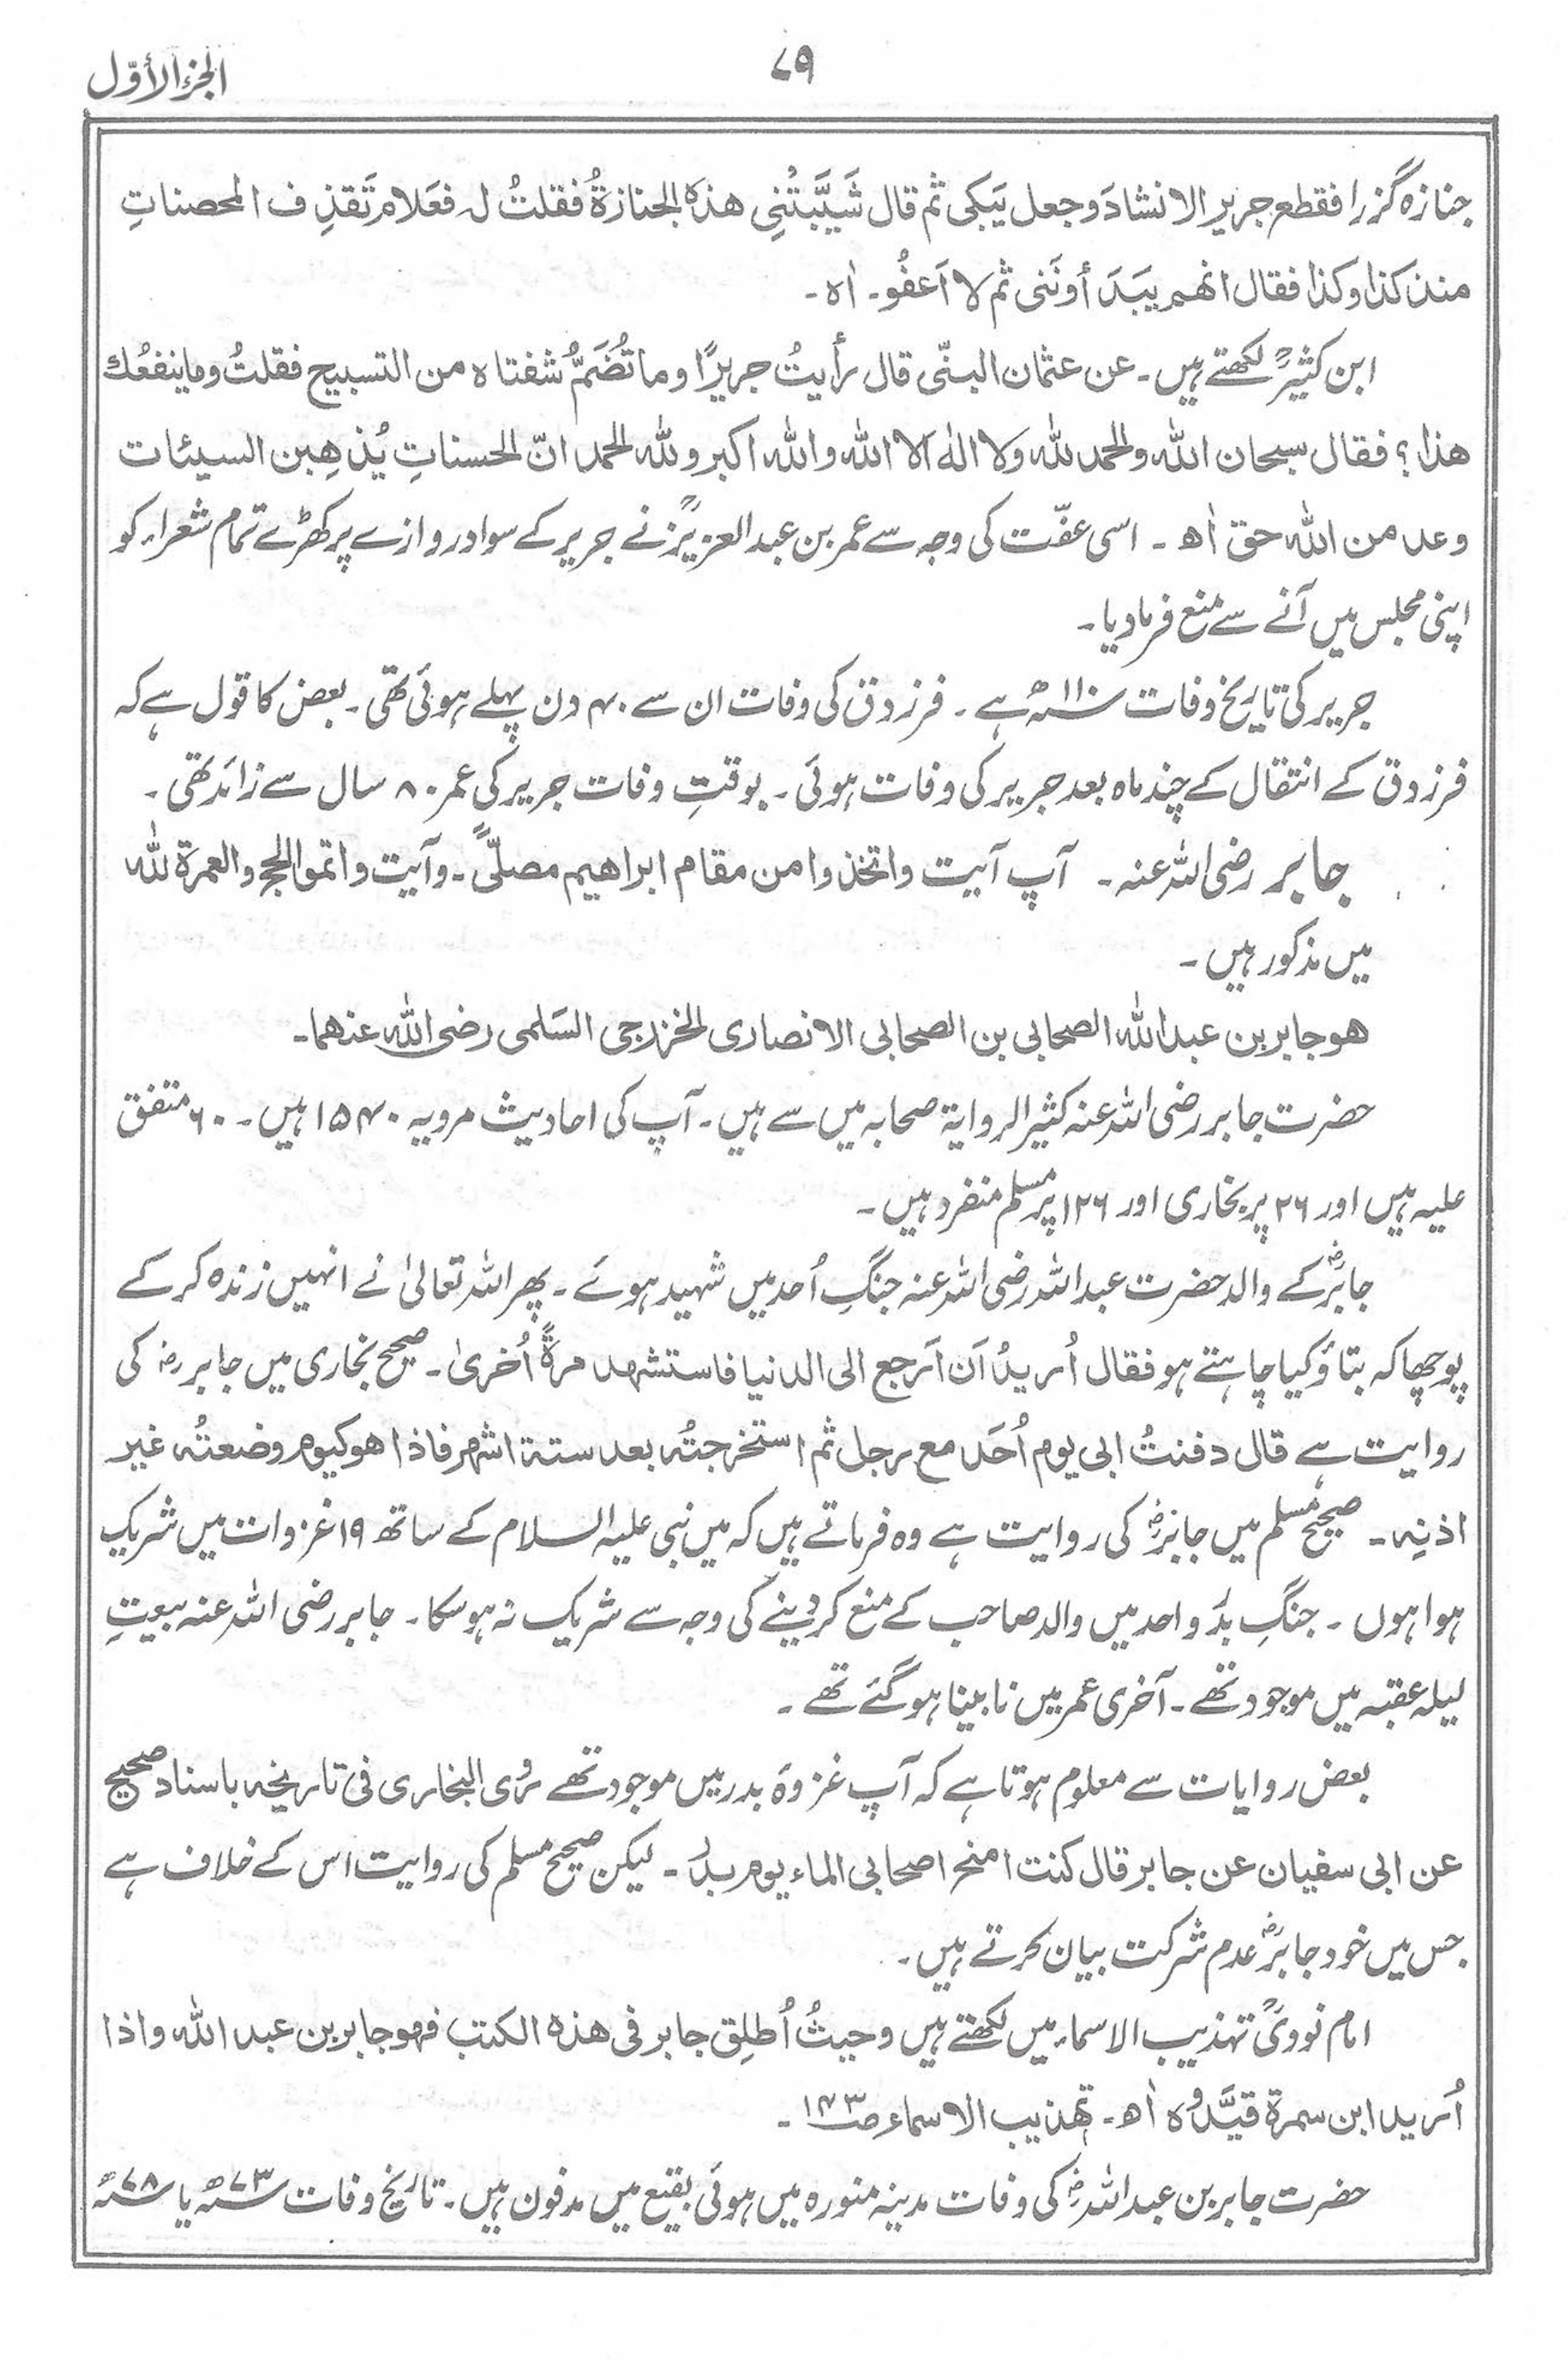 الجزء الأوّل
۷۹
جنازہ گزرا فقطع جریر الانشادَ وجعل یَبکی ثم قال شَیَّبَتْنِی ھذہ الجنازۃُ فقلتُ لہ فعَلامَ تَقذِف المحصناتِ
منذ کذا وکذا فقال انھم یَبدَأونَنی ثم لا اَعفُو۔ اہ۔
ابن کثیرؒ لکھتے ہیں۔ عن عثمان البتّی قال رأیتُ جریرًا وما تُضَمُّ شفتاہ من التسبیح فقلتُ وما ینفعُك
ھذا؟ فقال سبحان اللّٰہ والحمد للّٰہ ولا الٰہ الا اللّٰہ واللّٰہ اکبر وللّٰہ الحمد انّ الحسناتِ یُذھِبن السیئات
وعد من اللّٰہ حق اھ۔ اسی عفّت کی وجہ سے عمر بن عبد العزیزؒ نے جریر کے سوا دروازے پر کھڑے تمام شعراء کو
اپنی مجلس میں آنے سے منع فرما دیا۔
جریر کی تاریخ وفات ۱۱۰ھ ہے۔ فرزدق کی وفات ان سے ۴۰ دن پہلے ہوئی تھی۔ بعض کا قول ہے کہ
فرزدق کے انتقال کے چند ماہ بعد جریر کی وفات ہوئی۔ بوقتِ وفات جریر کی عمر ۸۰ سال سے زائد تھی۔
جابر رضی اللہ عنہ۔ آپ آیت واتخذوا من مقام ابراھیم مصلّیً۔ وآیت واتموا الحج والعمرۃ للّٰہ
میں مذکور ہیں۔
ھو جابر بن عبد اللّٰہ الصحابی بن الصحابی الانصاری الخزرجی السَلمی رضی اللّٰہ عنھما۔
حضرت جابر رضی اللہ عنہ کثیر الروایۃ صحابہ میں سے ہیں۔ آپ کی احادیث مرویہ ۱۵۴۰ ہیں۔ ۶۰ متفق
علیہ ہیں اور ۲۶ پر بخاری اور ۱۲۶ پر مسلم منفرد ہیں۔
جابرؓ کے والد حضرت عبد اللہ رضی اللہ عنہ جنگِ اُحد میں شہید ہوئے۔ پھر اللہ تعالیٰ نے انہیں زندہ کرکے
پوچھا کہ بتاؤ کیا چاہتے ہو فقال اُریدُ اَن اَرجع الی الدنیا فاستشھد مرۃً اُخریٰ۔ صحیح بخاری میں جابرؓ کی
روایت ہے قال دفنتُ ابی یوم اُحَد مع رجل ثم استخرجتُہ بعد ستۃ اشھر فاذا ھو کیوم وضعتُہ غیر
اذنِہ۔ صحیح مسلم میں جابرؓ کی روایت ہے وہ فرماتے ہیں کہ میں نبی علیہ السلام کے ساتھ ۱۹ غزوات میں شریک
ہوا ہوں۔ جنگِ بدر و احد میں والد صاحب کے منع کر دینے کی وجہ سے شریک نہ ہو سکا۔ جابر رضی اللہ عنہ بیعتِ
لیلہ عقبہ میں موجود تھے۔ آخری عمر میں نابینا ہو گئے تھے۔
بعض روایات سے معلوم ہوتا ہے کہ آپ غزوۂ بدر میں موجود تھے رَوٰی البخاری فی تاریخہ باسناد صحیح
عن ابی سفیان عن جابر قال کنت امنح اصحابی الماء یوم بدر۔ لیکن صحیح مسلم کی روایت اس کے خلاف ہے
جس میں خود جابرؓ عدم شرکت بیان کرتے ہیں۔
امام نوویؒ تہذیب الاسماء میں لکھتے ہیں وحیثُ اُطلِق جابر فی ھذہ الکتب فھو جابر بن عبد اللّٰہ واذا
اُرید ابن سمرۃ قیَّدُوہ اھ۔ تھذیب الاسماء ص ۱۴۳۔
حضرت جابر بن عبد اللہؓ کی وفات مدینہ منورہ میں ہوئی بقیع میں مدفون ہیں۔ تاریخ وفات ۷۳ھ یا ۷۸ھ